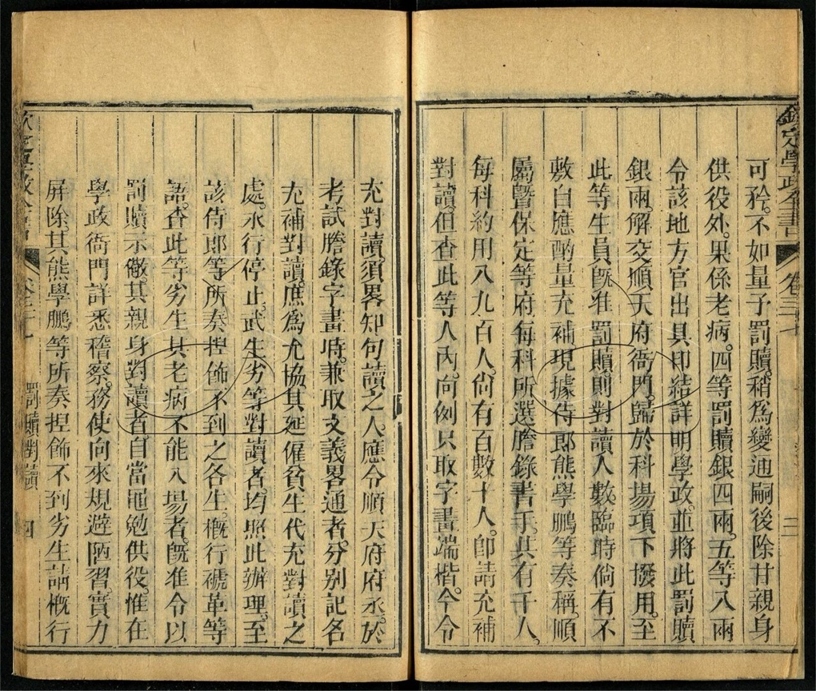 可矜。不如量予罰贖。稍爲變通嗣後除甘親身
供役外。果係老病。四等罰贖銀四兩。五等八兩
令該地方官出具印結詳明學政。並將此罰贖
銀兩。解交順天府衙門。歸於科場項下撥用。至
此等生員。旣准罰贖則對讀人數臨時倘有不
敷自應酌量充補現據侍郎熊學鵬等奏稱。順
屬暨保定等府。每科所選謄錄書手。共有千人。
每科約用八九百人。尙有百數十人。卽請充補
對讀但查此等人內。向例只取字畫端楷。今令
欽定學政全書
卷三十七
三
充對讀。須畧知句讀之人應令順天府府丞。於
考試謄錄字畫時。兼取文義畧通者。分別記名
充補對讀。庶爲允協其延僱貧生代充對讀之
處。永行停止武生劣等對讀者均照此辦理。至
該侍郎等所奏捏飾不到之各生。槪行褫革等
語。查此等劣生其老病不能入場者。旣准令以
罰贖示儆其親身對讀者自當黽勉供役。惟在
學政衙門詳悉稽察。務使向來規避陋習實力
屏除其熊學鵬等所奏捏飾不到劣生請槪行
欽定學政全書
卷三十七
罰贖對讀
四